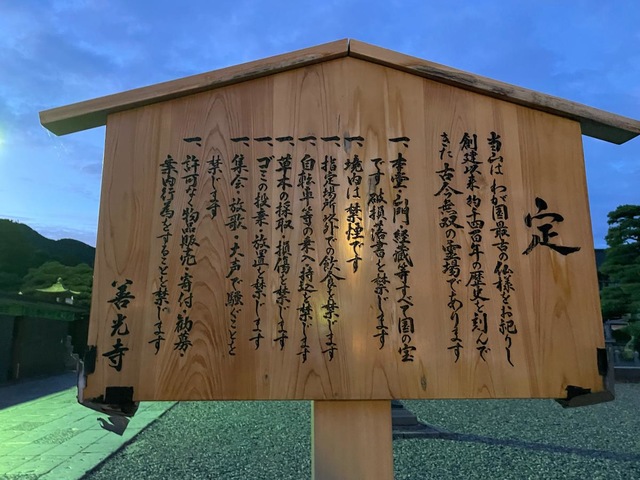 定
当山は、わが国最古の仏様をお祀りし
創建以来約千四百年の歴史を刻んで
きた古今無双の霊場であります
一、本堂・山門・経蔵等すべて国の宝
です 破損落書を禁じます
一、境内は禁煙です
一、指定場所以外での飲食を禁じます
一、自転車等の乗入・持込を禁じます
一、草木の採取・損傷を禁じます
一、ゴミの投棄・放置を禁じます
一、集会・放歌・大声で騒ぐことを
禁じます
一、許可なく物品販売・寄付・勧募・
案内行為をすることを禁じます
善光寺